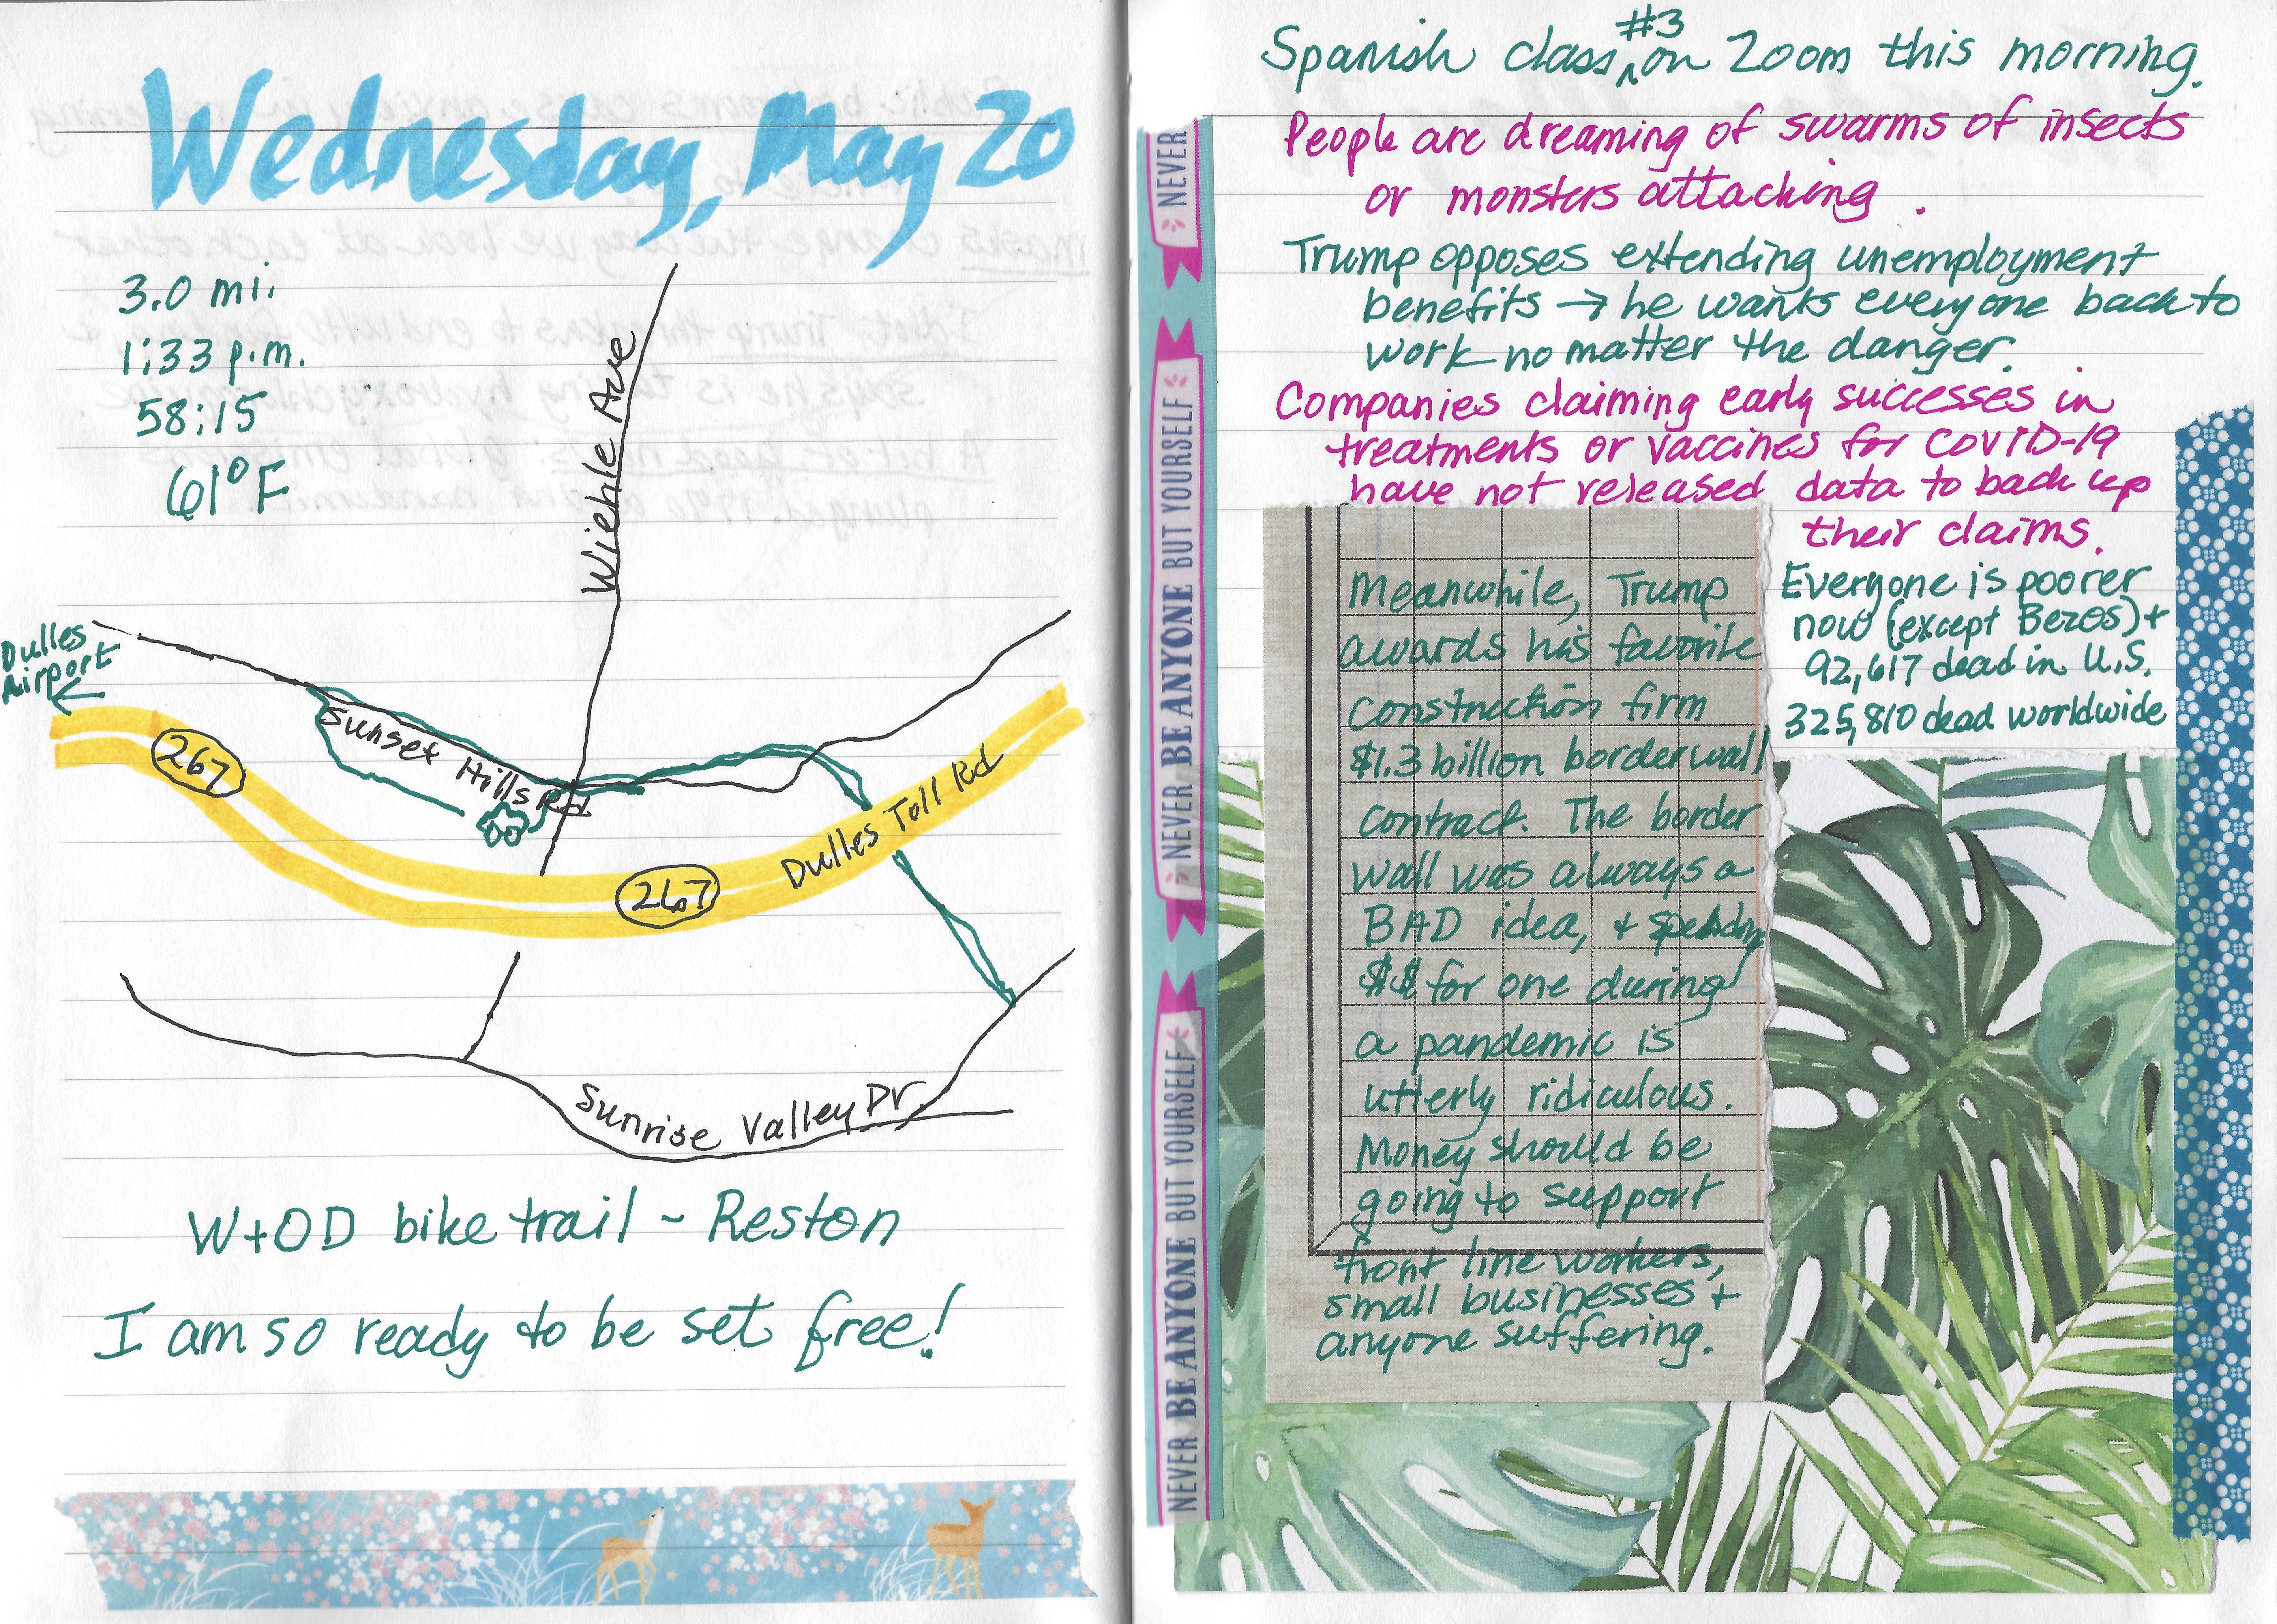 Wednesday, May 20
3.0 mi.
1:33 p.m.
58:15
61°F
Wiehle Ave
Dulles
Airport
Sunset Hills Rd
267
267
Dulles Toll Rd
Sunrise Valley Dr.
W+OD bike trail ~ Reston
I am so ready to be set free!
#3
Spanish class, ^ on Zoom this morning.
People are dreaming of swarms of insects
or monsters attacking.
Trump opposes extending unemployment
benefits → he wants everyone back to
work no matter the danger.
Companies claiming early successes in
treatments or vaccines for COVID-19
have not released data to back up
their claims.
Everyone is poorer
now (except Bezos) +
92,617 dead in U.S.
325,810 dead worldwide
Meanwhile, Trump
awards his favorite
construction firm
$1.3 billion border wall
contract. The border
wall was always a
BAD idea, + spending
$$ for one during
a pandemic is
utterly ridiculous.
Money should be
going to support
front line workers,
small businesses +
anyone suffering.
NEVER
NEVER BE ANYONE BUT YOURSELF
NEVER BE ANYONE BUT YOURSELF